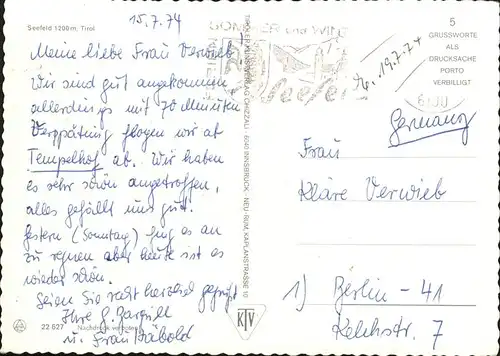 Seefeld 1200 m, Tirol
15.7.74
Meine liebe Frau Verwieb!
Wir sind gut angekommen
allerdings mit 70 Minuten
Verspätung flogen wir ab
Tempelhof ab. Wir haben
es sehr schön angetroffen,
alles gefällt uns gut.
Gestern (Sonntag) fing es an
zu regnen aber heute ist es
wieder schön.
Seien Sie recht herzlich gegrüßt
Ihre G.
u. Frau
22 627 Nachdruck verboten
TIROLER KUNSTVERLAG CHIZZALI 6040 INNSBRUCK-NEU-RUM, KAPLANSTRASSE 10
KTV
5
GRUSSWORTE
ALS
DRUCKSACHE
PORTO
VERBILLIGT
Seefeld
19.7.74
6100
Germany
Frau
Kläre Verwieb
1) Berlin - 41
Kelchstr. 7